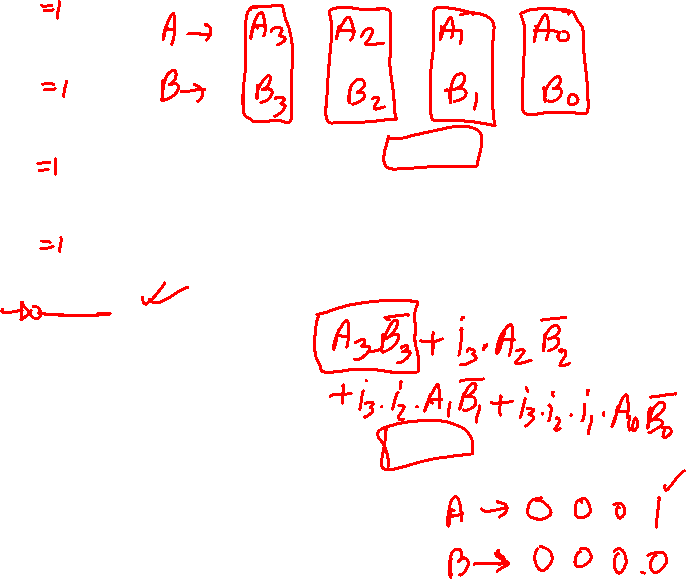 =1
A → A₃ A₂ A₁ A₀
=1
B → B₃ B₂ B₁ B₀
=1
=1
A₃B̅₃ + i₃.A₂B̅₂
+ i₃.i₂.A₁B̅₁ + i₃.i₂.i₁.A₀B̅₀
A → 0 0 0 1
B → 0 0 0.0